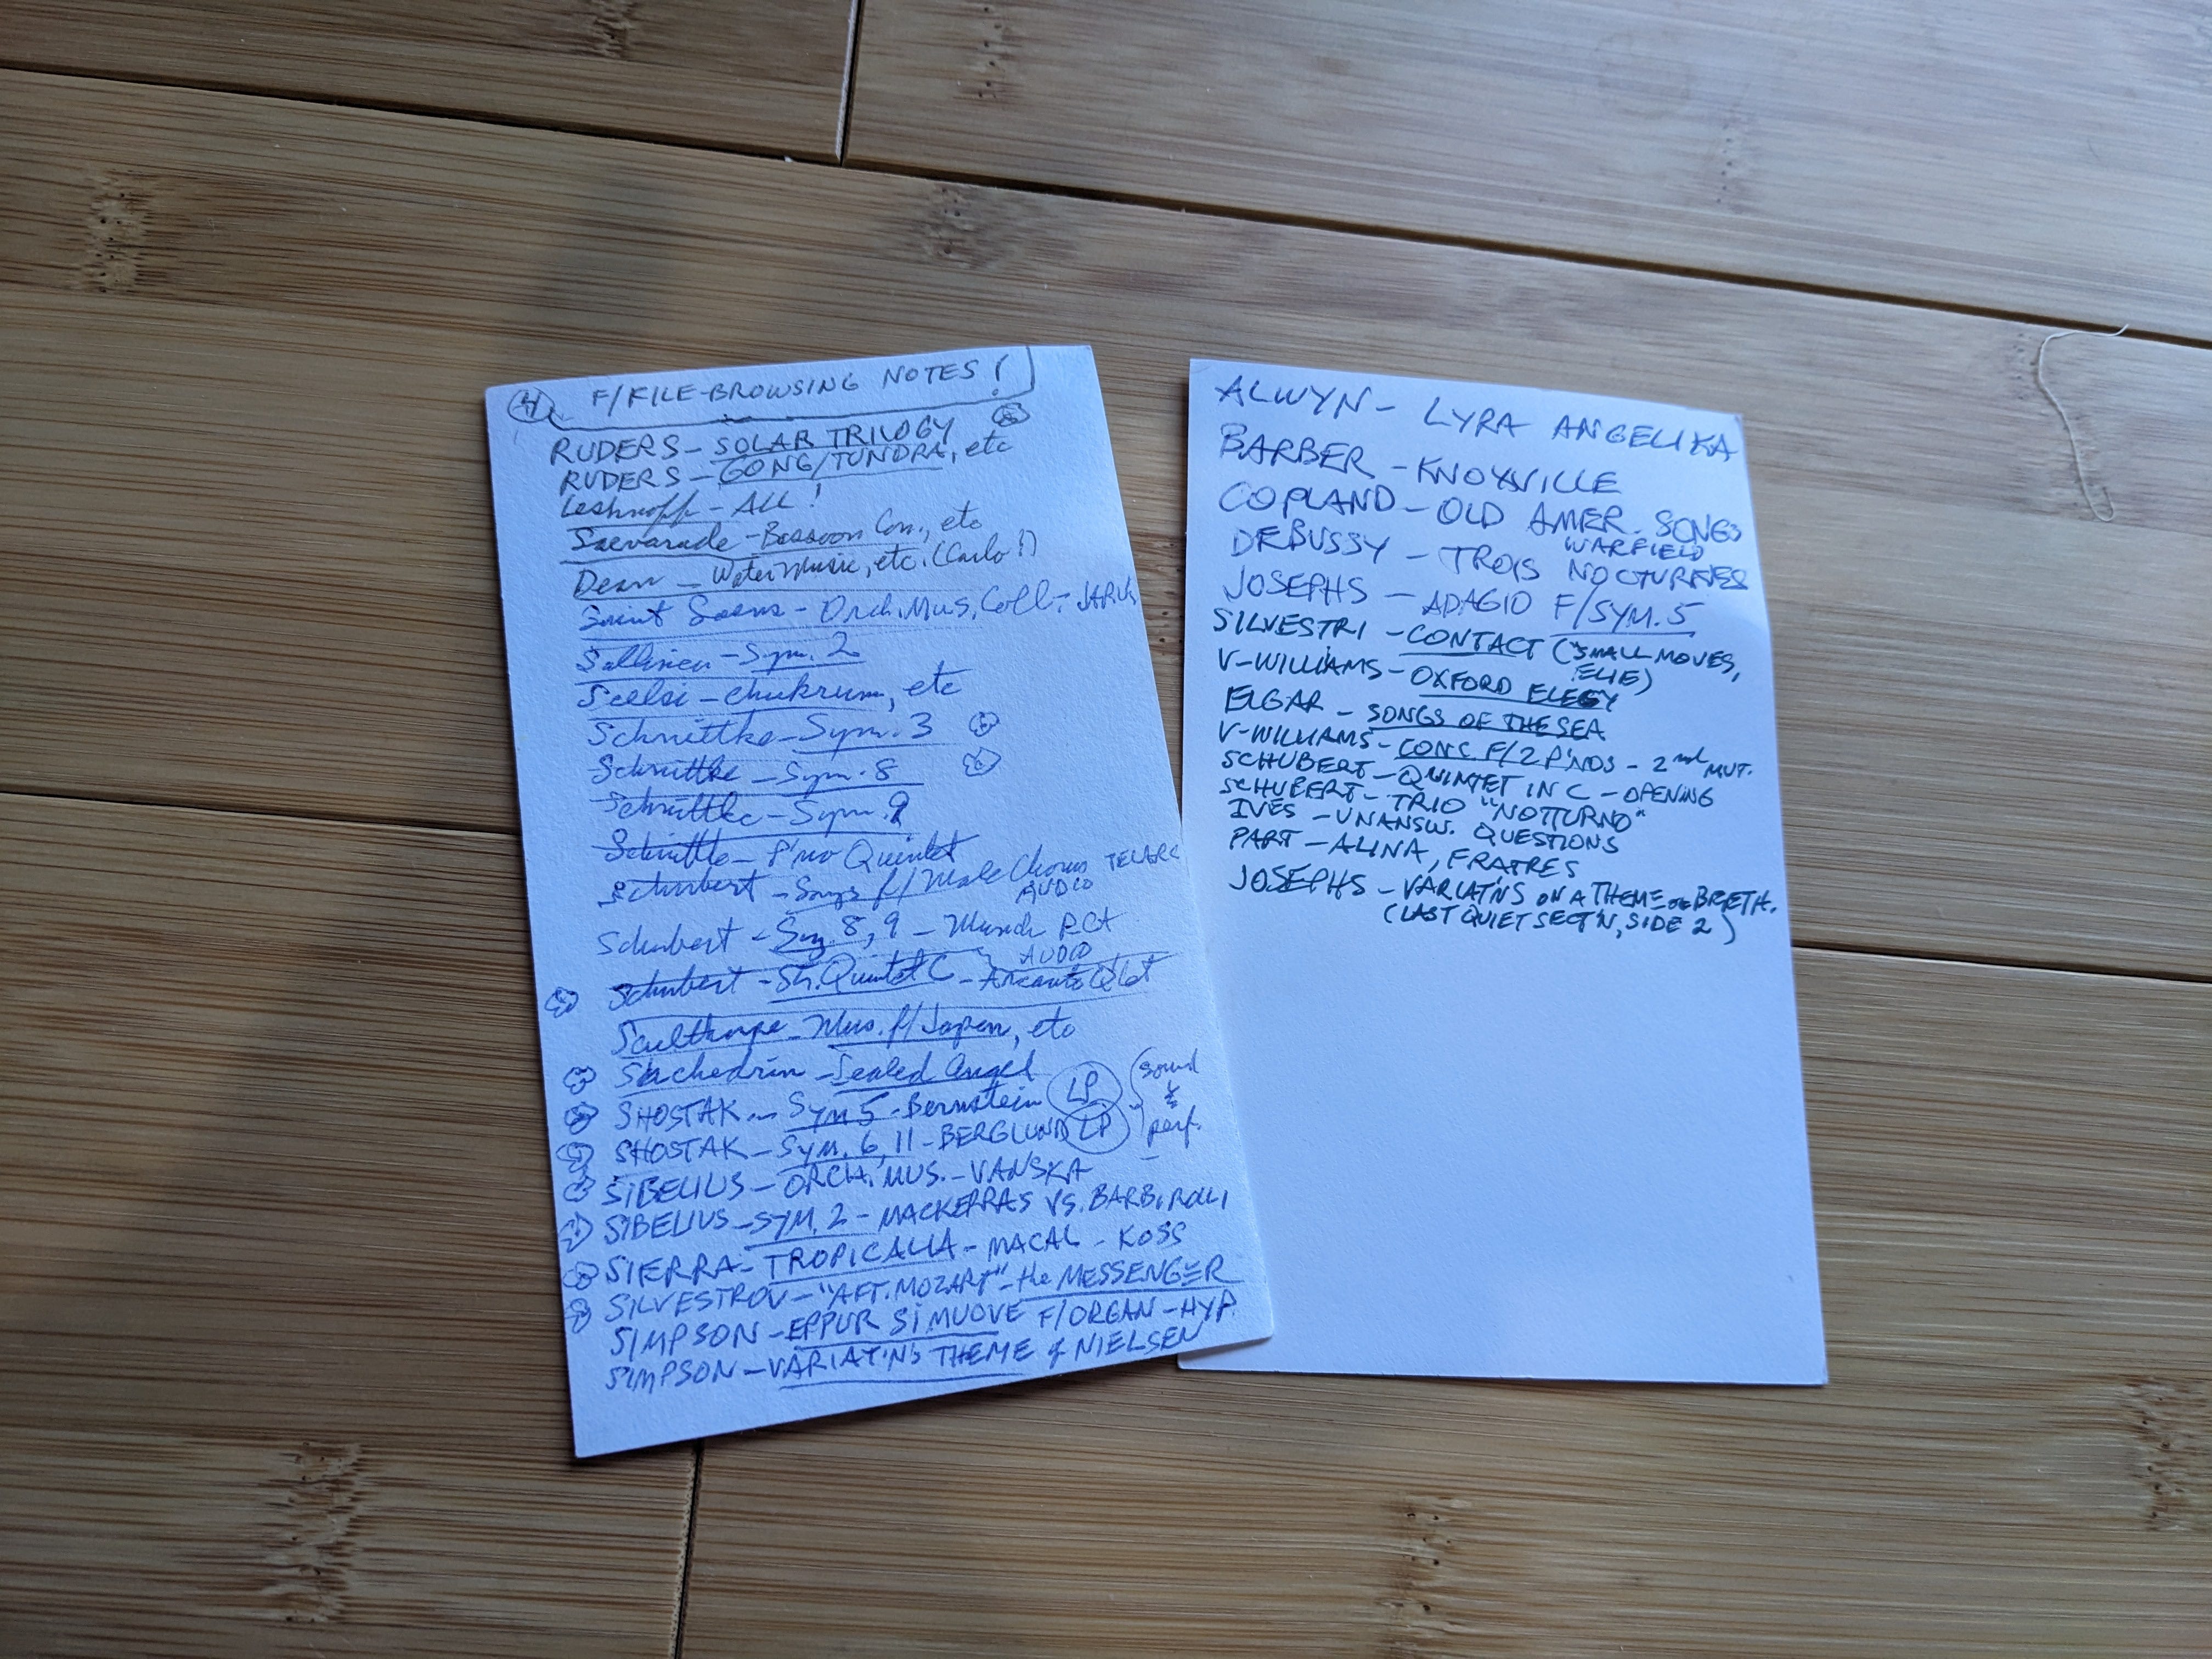 4 F/FILE-BROWSING NOTES!
RUDERS - SOLAR TRILOGY
RUDERS - GONG/TUNDRA, etc
Leshnoff - ALL!
Saevarude - Bassoon Con., etc
Dean - Water Music, etc. (Carlo!)
Saint Saens - Orch. Mus. Coll. - JARVI
Sallinen - Sym. 2
Scelsi - chukrum, etc
Schnittke - Sym. 3
Schnittke - Sym. 8
Schnittke - Sym. 9
Schnittke - P'no Quintet
Schubert - Songs f/ Male Chorus TELARC
AUDIO
Schubert - Sym. 8, 9 - Munch RCA
AUDIO
Schubert - St. Quintet C - Arcanto Q'tet
Sculthorpe - Mus. f/ Japan, etc
Schchedrin - Sealed Angel
SHOSTAK - Sym 5 - Bernstein LP (sound
SHOSTAK - SYM. 6, 11 - BERGLUND LP & perf.
SIBELIUS - ORCH. MUS. - VANSKA
SIBELIUS - SYM. 2 - MACKERRAS VS. BARBIROLLI
SIERRA - TROPICALIA - MACAL - KOSS
SILVESTROV - "AFT. MOZART" - the MESSENGER
SIMPSON - EPPUR SI MUOVE F/ORGAN - HYP.
SIMPSON - VARIAT'NS THEME of NIELSEN
ALWYN - LYRA ANGELIKA
BARBER - KNOXVILLE
COPLAND - OLD AMER. SONGS
WARFIELD
DEBUSSY - TROIS NOCTURNES
JOSEPHS - ADAGIO F/SYM. 5
SILVESTRI - CONTACT ("SMALL MOVES,
ELLIE)
V-WILLIAMS - OXFORD ELEGY
ELGAR - SONGS OF THE SEA
V-WILLIAMS - CONC. F/2 P'NOS - 2nd MVT.
SCHUBERT - QUINTET IN C - OPENING
SCHUBERT - TRIO "NOTTURNO"
IVES - UNANSW. QUESTIONS
PART - ALINA, FRATRES
JOSEPHS - VARIAT'NS ON A THEME OF BEETH.
(LAST QUIET SECT'N, SIDE 2)